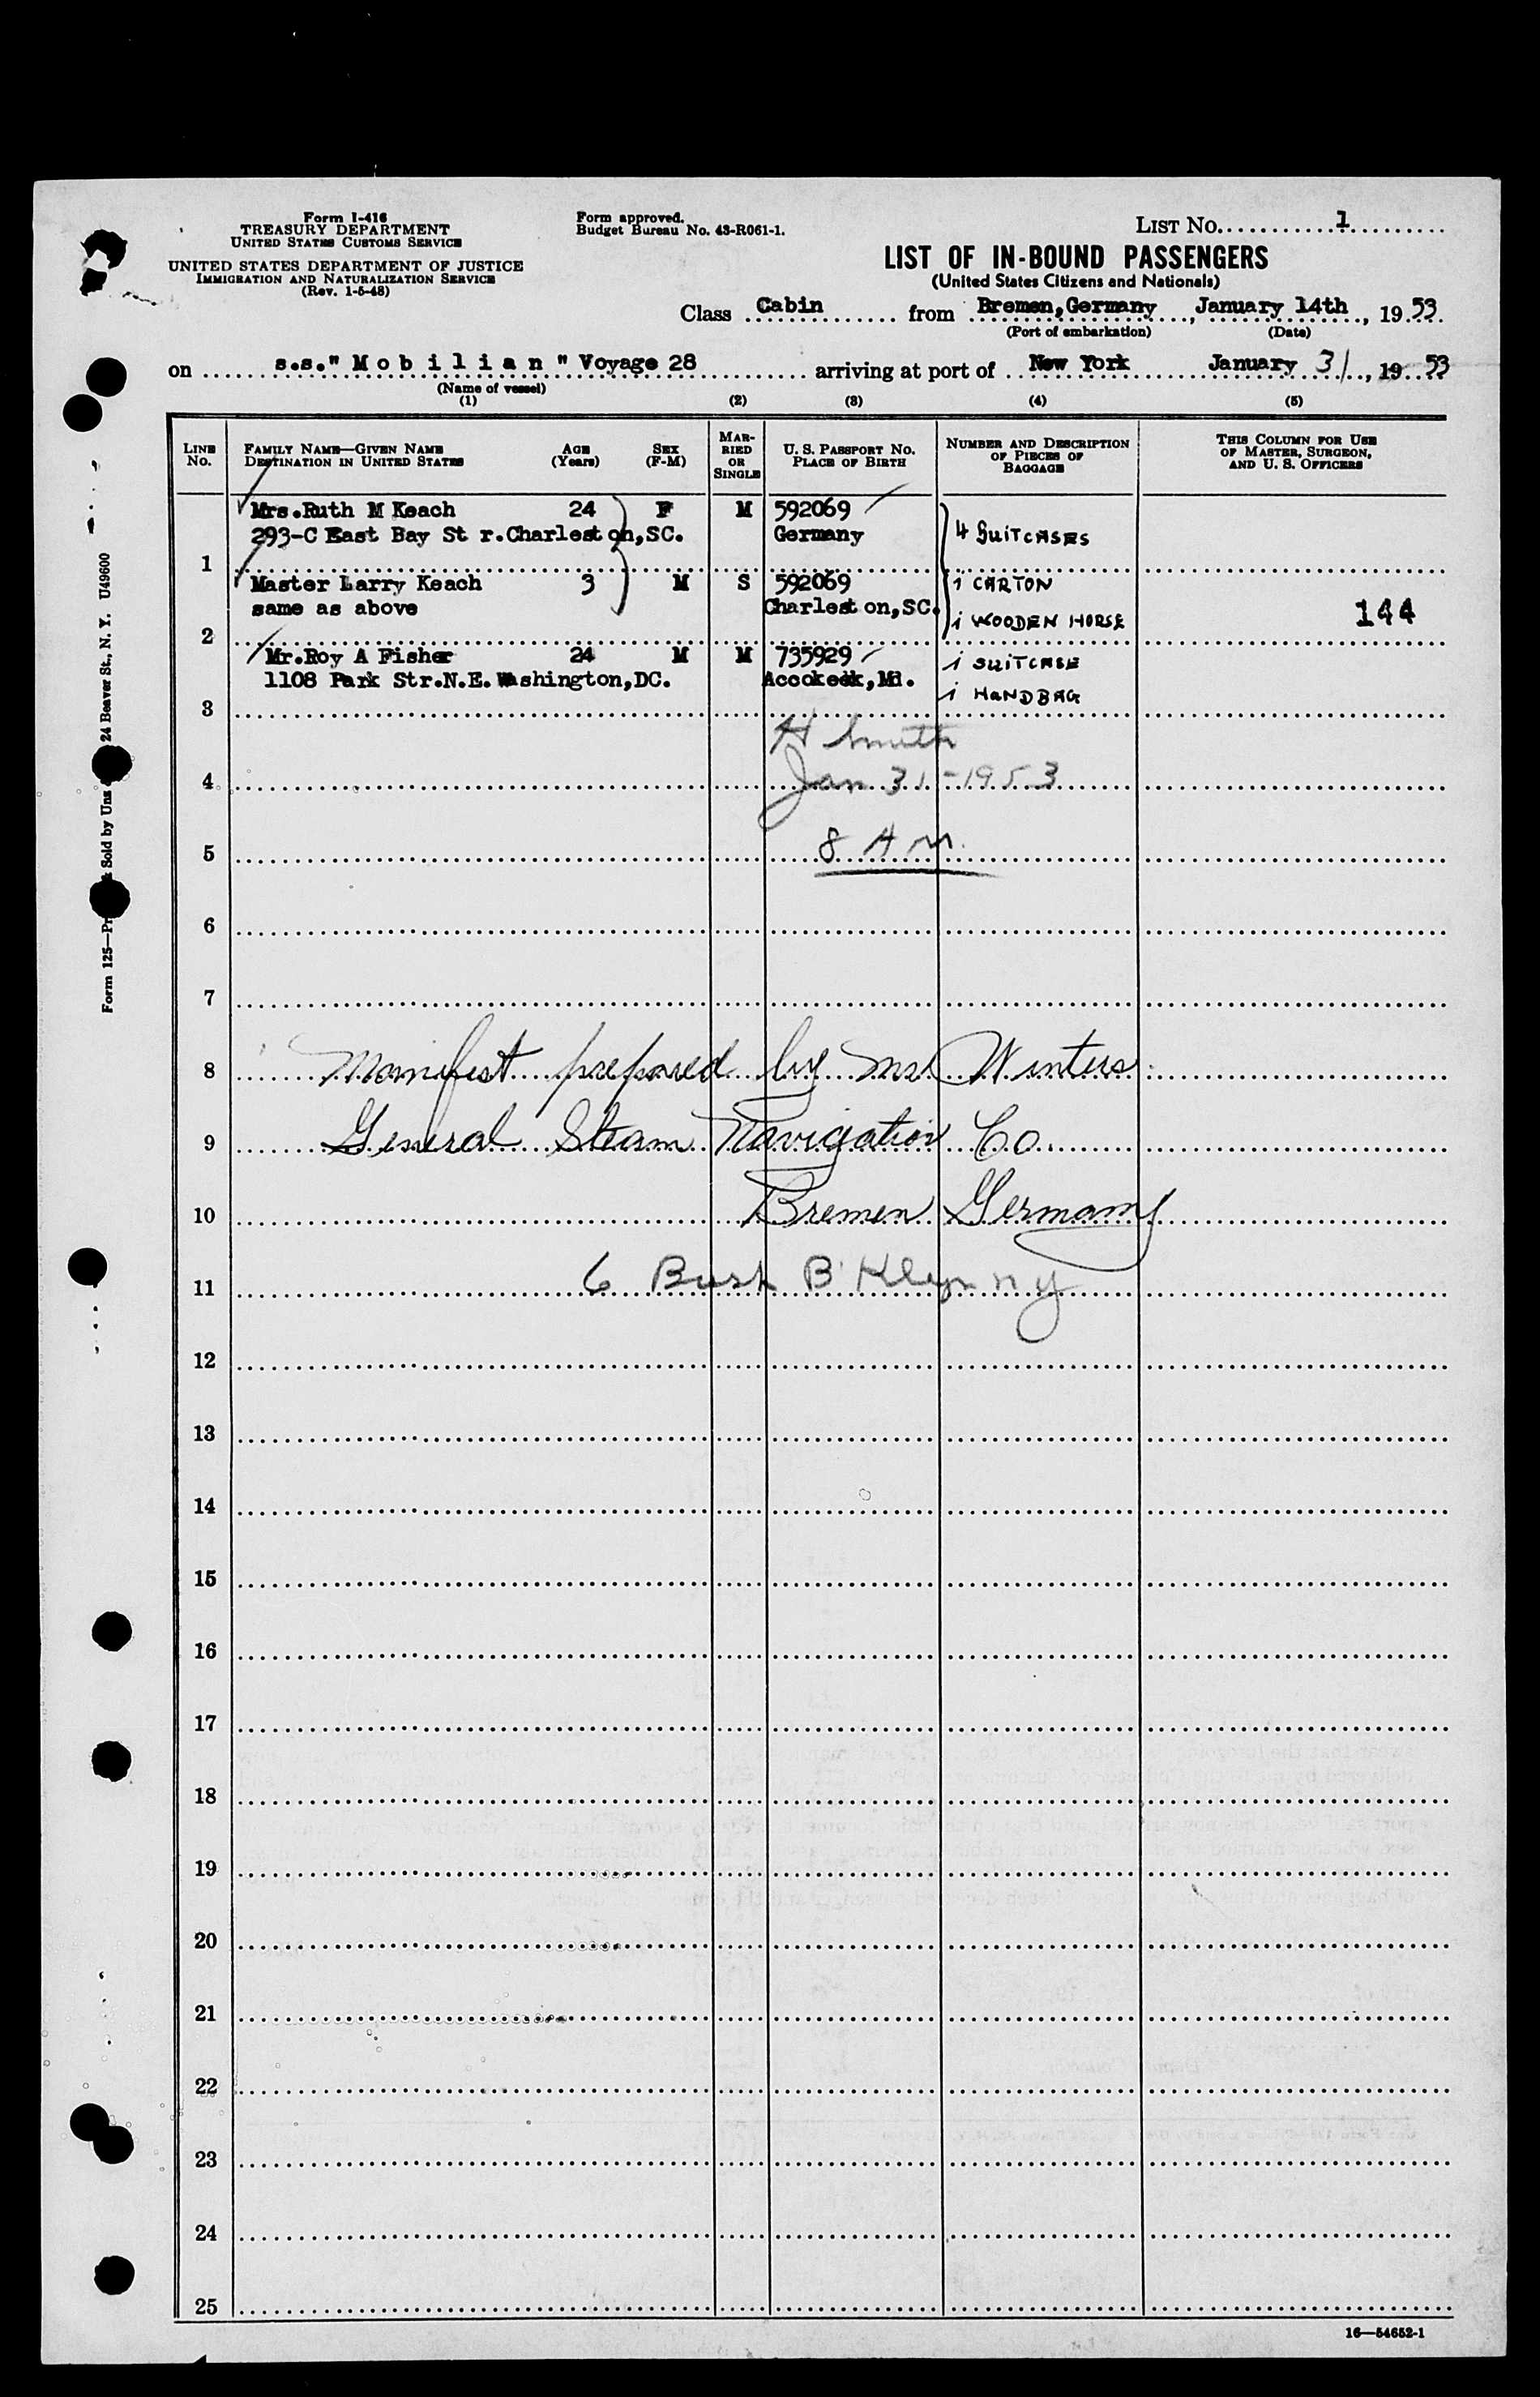 Form I-416
TREASURY DEPARTMENT
UNITED STATES CUSTOMS SERVICE
UNITED STATES DEPARTMENT OF JUSTICE
IMMIGRATION AND NATURALIZATION SERVICE
(Rev. 1-5-48)
Form approved.
Budget Bureau No. 43-R061-1.
LIST No. 1
LIST OF IN-BOUND PASSENGERS
(United States Citizens and Nationals)
Class Cabin from Bremen,Germany, January 14th, 1953
(Port of embarkation) (Date)
on s.s."Mobilian" Voyage 28 arriving at port of New York January 31, 1953
(Name of vessel)
(1) (2) (3) (4) (5)
LINE No. FAMILY NAME—GIVEN NAME DESTINATION IN UNITED STATES AGE (Years) SEX (F-M) MARRIED OR SINGLE U. S. PASSPORT NO. PLACE OF BIRTH NUMBER AND DESCRIPTION OF PIECES OF BAGGAGE THIS COLUMN FOR USE OF MASTER, SURGEON, AND U. S. OFFICERS
Mrs.Ruth M Keach 24 F M 592069
293-C East Bay Str.Charleston,SC. Germany 4 SUITCASES
1
Master Larry Keach 3 M S 592069 1 CARTON
same as above Charleston,SC. 1 WOODEN HORSE 144
2
Mr.Roy A Fisher 24 M M 735929 1 SUITCASE
1108 Park Str.N.E.Washington,DC. Accokeek,Md. 1 HANDBAG
3
H Smith
4 Jan 31-1953
5 8 AM
6
7
8 Manifest prepared by Mr Winters
9 General Steam Navigation Co.
10 Bremen Germany
11 6 Bush B'Klyn ny
12
13
14
15
16
17
18
19
20
21
22
23
24
25
16—54652-1
Form 125—Pr
Sold by Unz
24 Beaver St., N. Y. U49600